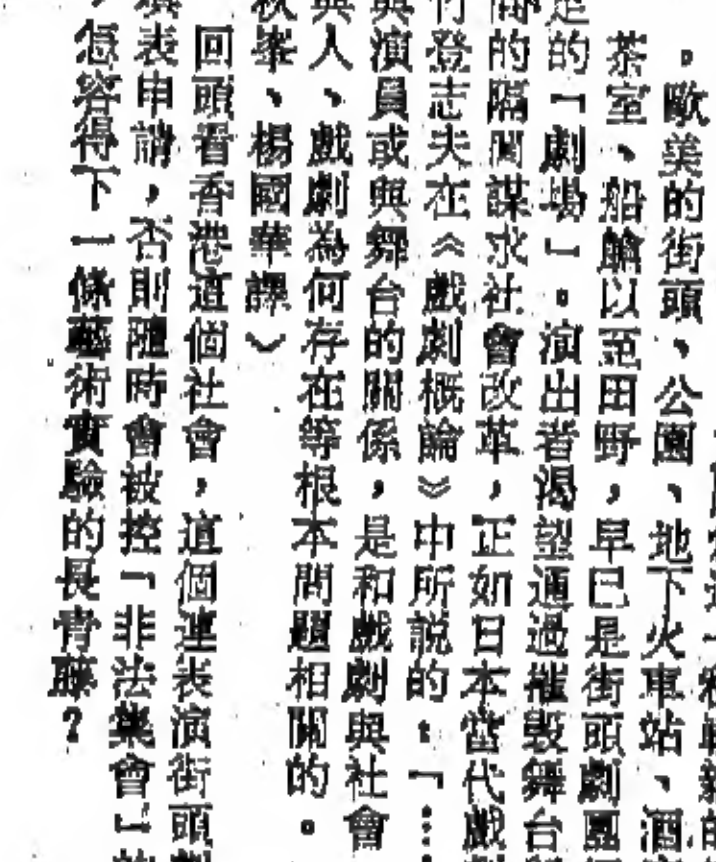 。歐美的街頭、公園、地下火車站、酒
茶室、船艙以至田野，早已是街頭劇團
的「劇場」。演出者渴望通過摧毀舞台
的隔閡謀求社會改革，正如日本當代戲
竹登志夫在《戲劇概論》中所說的：「…
與演員或與舞台的關係，是和戲劇與社會
與人、戲劇為何存在等根本問題相關的。
秋峯、楊國華譯〉
回頭看香港這個社會，這個連表演街頭
填表申請，否則隨時會被控「非法集會」的
，怎容得下一條藝術實驗的長青藤？